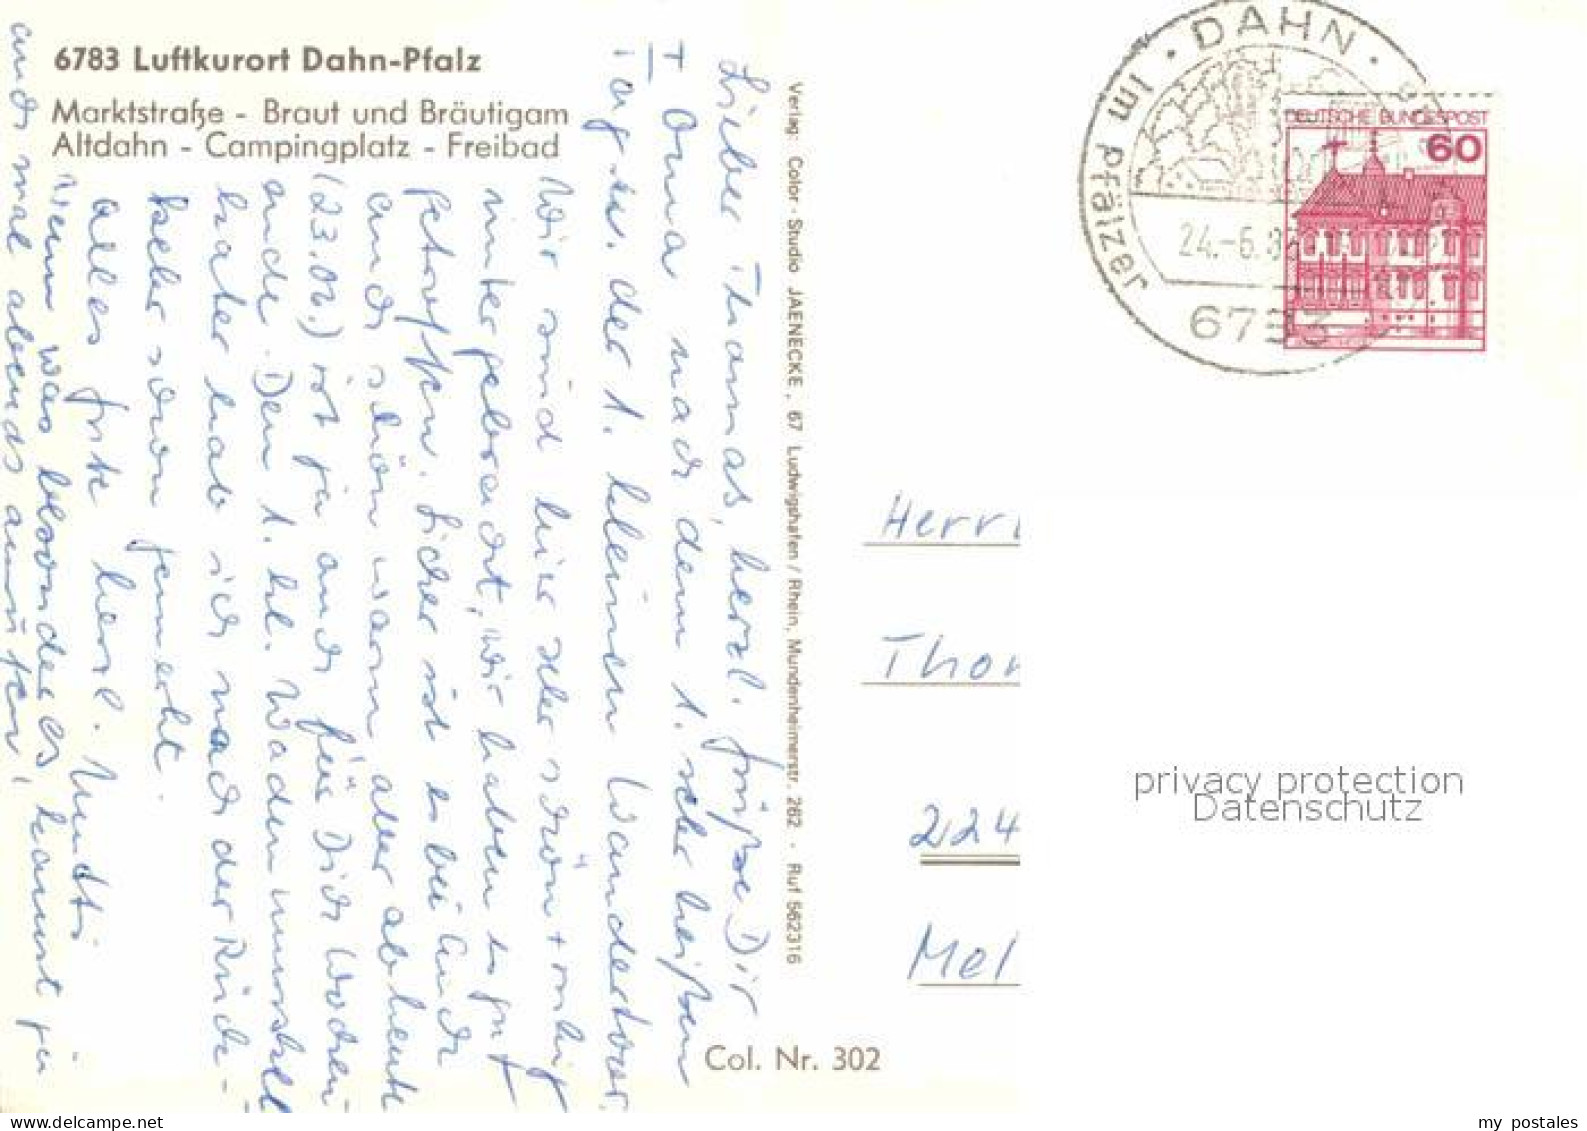 6783 Luftkurort Dahn-Pfalz
Marktstraße - Braut und Bräutigam
Altdahn - Campingplatz - Freibad
Lieber Thomas, herzl. Grüße Dir
+ Oma nach dem 1. sehr heißen
Tag u. der 1. kleinen Wandertour.
Wir sind hier sehr schön + ruhig
untergebracht, wir haben es gut
getroffen. Sicher ist es bei Euch
auch schön warm aber ab heute
(23.06.) ist ja auch für Dich Wochen-
ende. Den 1. kl. Wadenmuskel
kater hab ich nach der Rück-
kehr schon gemerkt.
Alles Gute herzl. Mutti
Wenn was besonderes kannst ja
auch mal abends anrufen!
Verlag: Color-Studio JAENECKE, 67 Ludwigshafen / Rhein, Mundenheimerstr. 262 · Ruf 562316
Col. Nr. 302
DAHN
Im Pfälzer
24.-6.8
6783
DEUTSCHE BUNDESPOST
60
Herr
Tho
224
Mel
privacy protection
Datenschutz
my postales